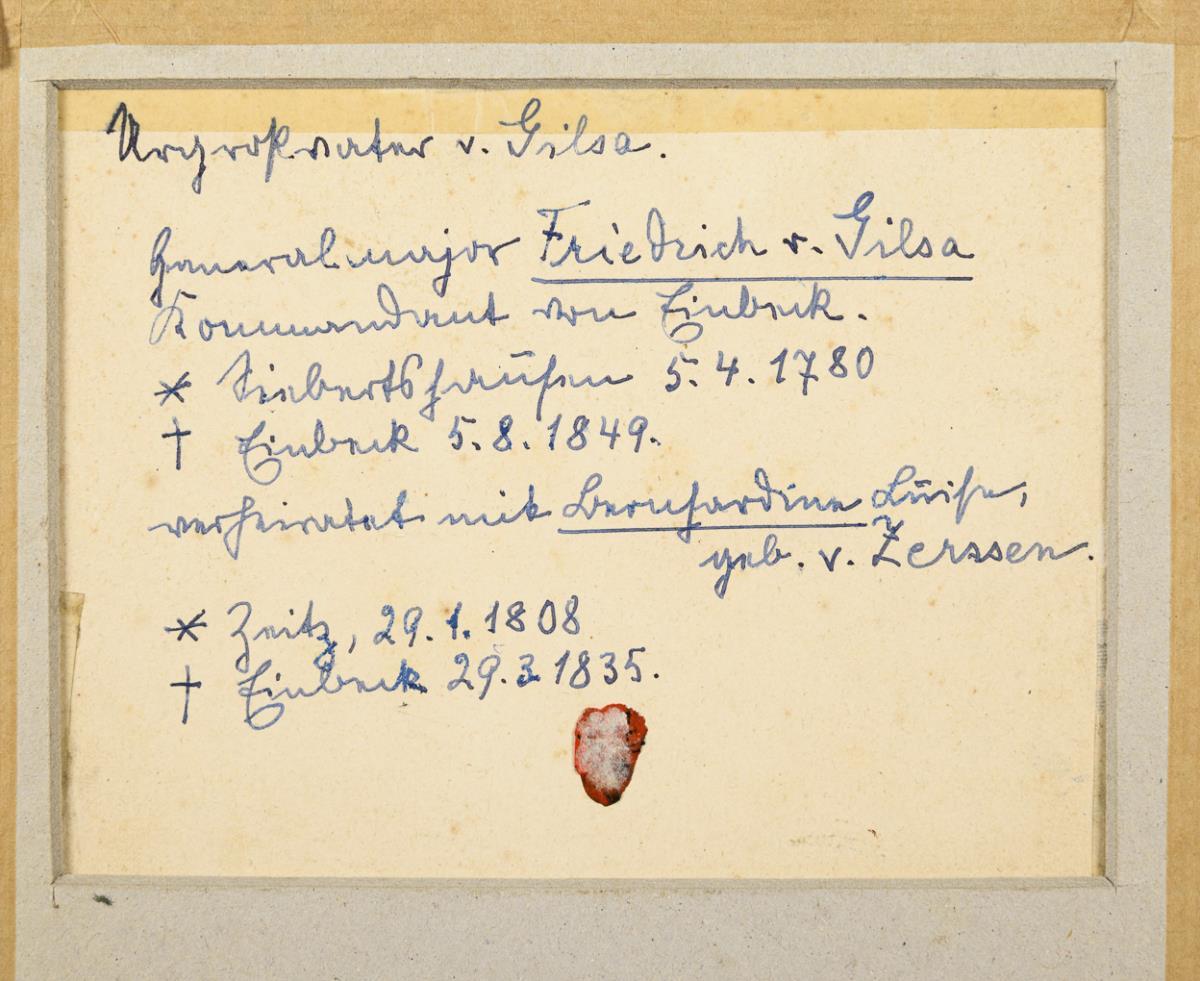 Urgroßvater v. Gilsa.
Generalmajor Friedrich v. Gilsa
Kommandant von Einbeck.
* Siebertshausen 5.4.1780
† Einbeck 5.8.1849.
verheiratet mit Bernhardine Luise,
geb. v. Zerssen.
* Zeitz, 29.1.1808
† Einbeck 29.3.1835.